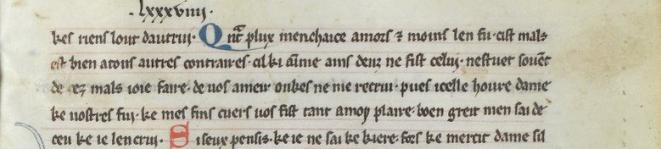 .lxxxviiij.
kes riens lour dautrui. Qnt plux menchaice amors ⁊ moins len fu. cist mals
est bien atous autres contraires. al ki aime ains deuz ne fist celui. nestuet souent
de ces mals ioie faire. de uos ameir onkes ne me recrui. pues icelle houre dame
ke uostres fui. ke mes fins cuers uos fist tant amoy plaire. boen greit men sai de
ceu ke ie len crui. Siseux pensis. ke ie ne sai ke kiere. fors ke mercit dame sil